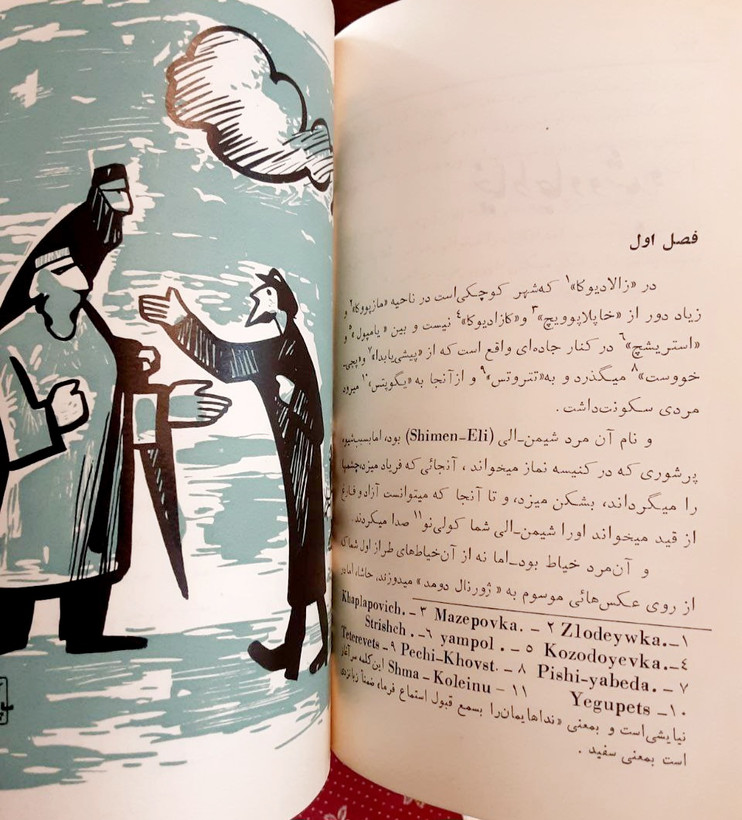 فصل اول
در «زالادیوکا»۱ که‌شهر کوچکی‌است در ناحیه «مازپووکا»۲ و
زیاد دور از «خاپلاپوویچ»۳ و «کازادیوکا»۴ نیست و بین «یامپول»۵ و
«استریشچ»۶ در کنار جاده‌ای واقع است که از «پیشی‌یابدا»۷ و «پچی‌-
خووست»۸ میگذرد و به «تتروتس»۹ و ازآنجا به «یگوپتس»۱۰ میرود
مردی سکونت‌داشت.
و نام آن مرد شیمن‌-الی (Shimen-Eli) بود، امابسبب‌شیوه
پرشوری که در کنیسه نماز میخواند، آنجائی که فریاد میزد، چشمها
را میگرداند، بشکن میزد، و تا آنجا که میتوانست آزاد و فارغ
از قید میخواند اورا شیمن‌-الی شما کولی‌نو۱۱ صدا میکردند.
و آن‌مرد خیاط بود-اما نه از آن‌خیاط‌های طراز اول شما که
از روی عکس‌هائی موسوم به «ژورنال دومد» میدوزند، حاشا، امادر
۱- Zlodeywka. ۲ - Mazepovka. ۳ - Khaplapovich.
۴- Kozodoyevka. ۵ - yampol . ۶ - Strishch
۷ - Pishi-yabeda. ۸ - Pechi-Khovst. ۹ - Teterevets
۱۰- Yegupets ۱۱ - Shma - Koleinu این‌کلمه سرآغاز
نیایشی‌است و بمعنی «نداهایمان‌را بسمع قبول استماع فرما»، ضمناً زبانزد
است بمعنی سفید .